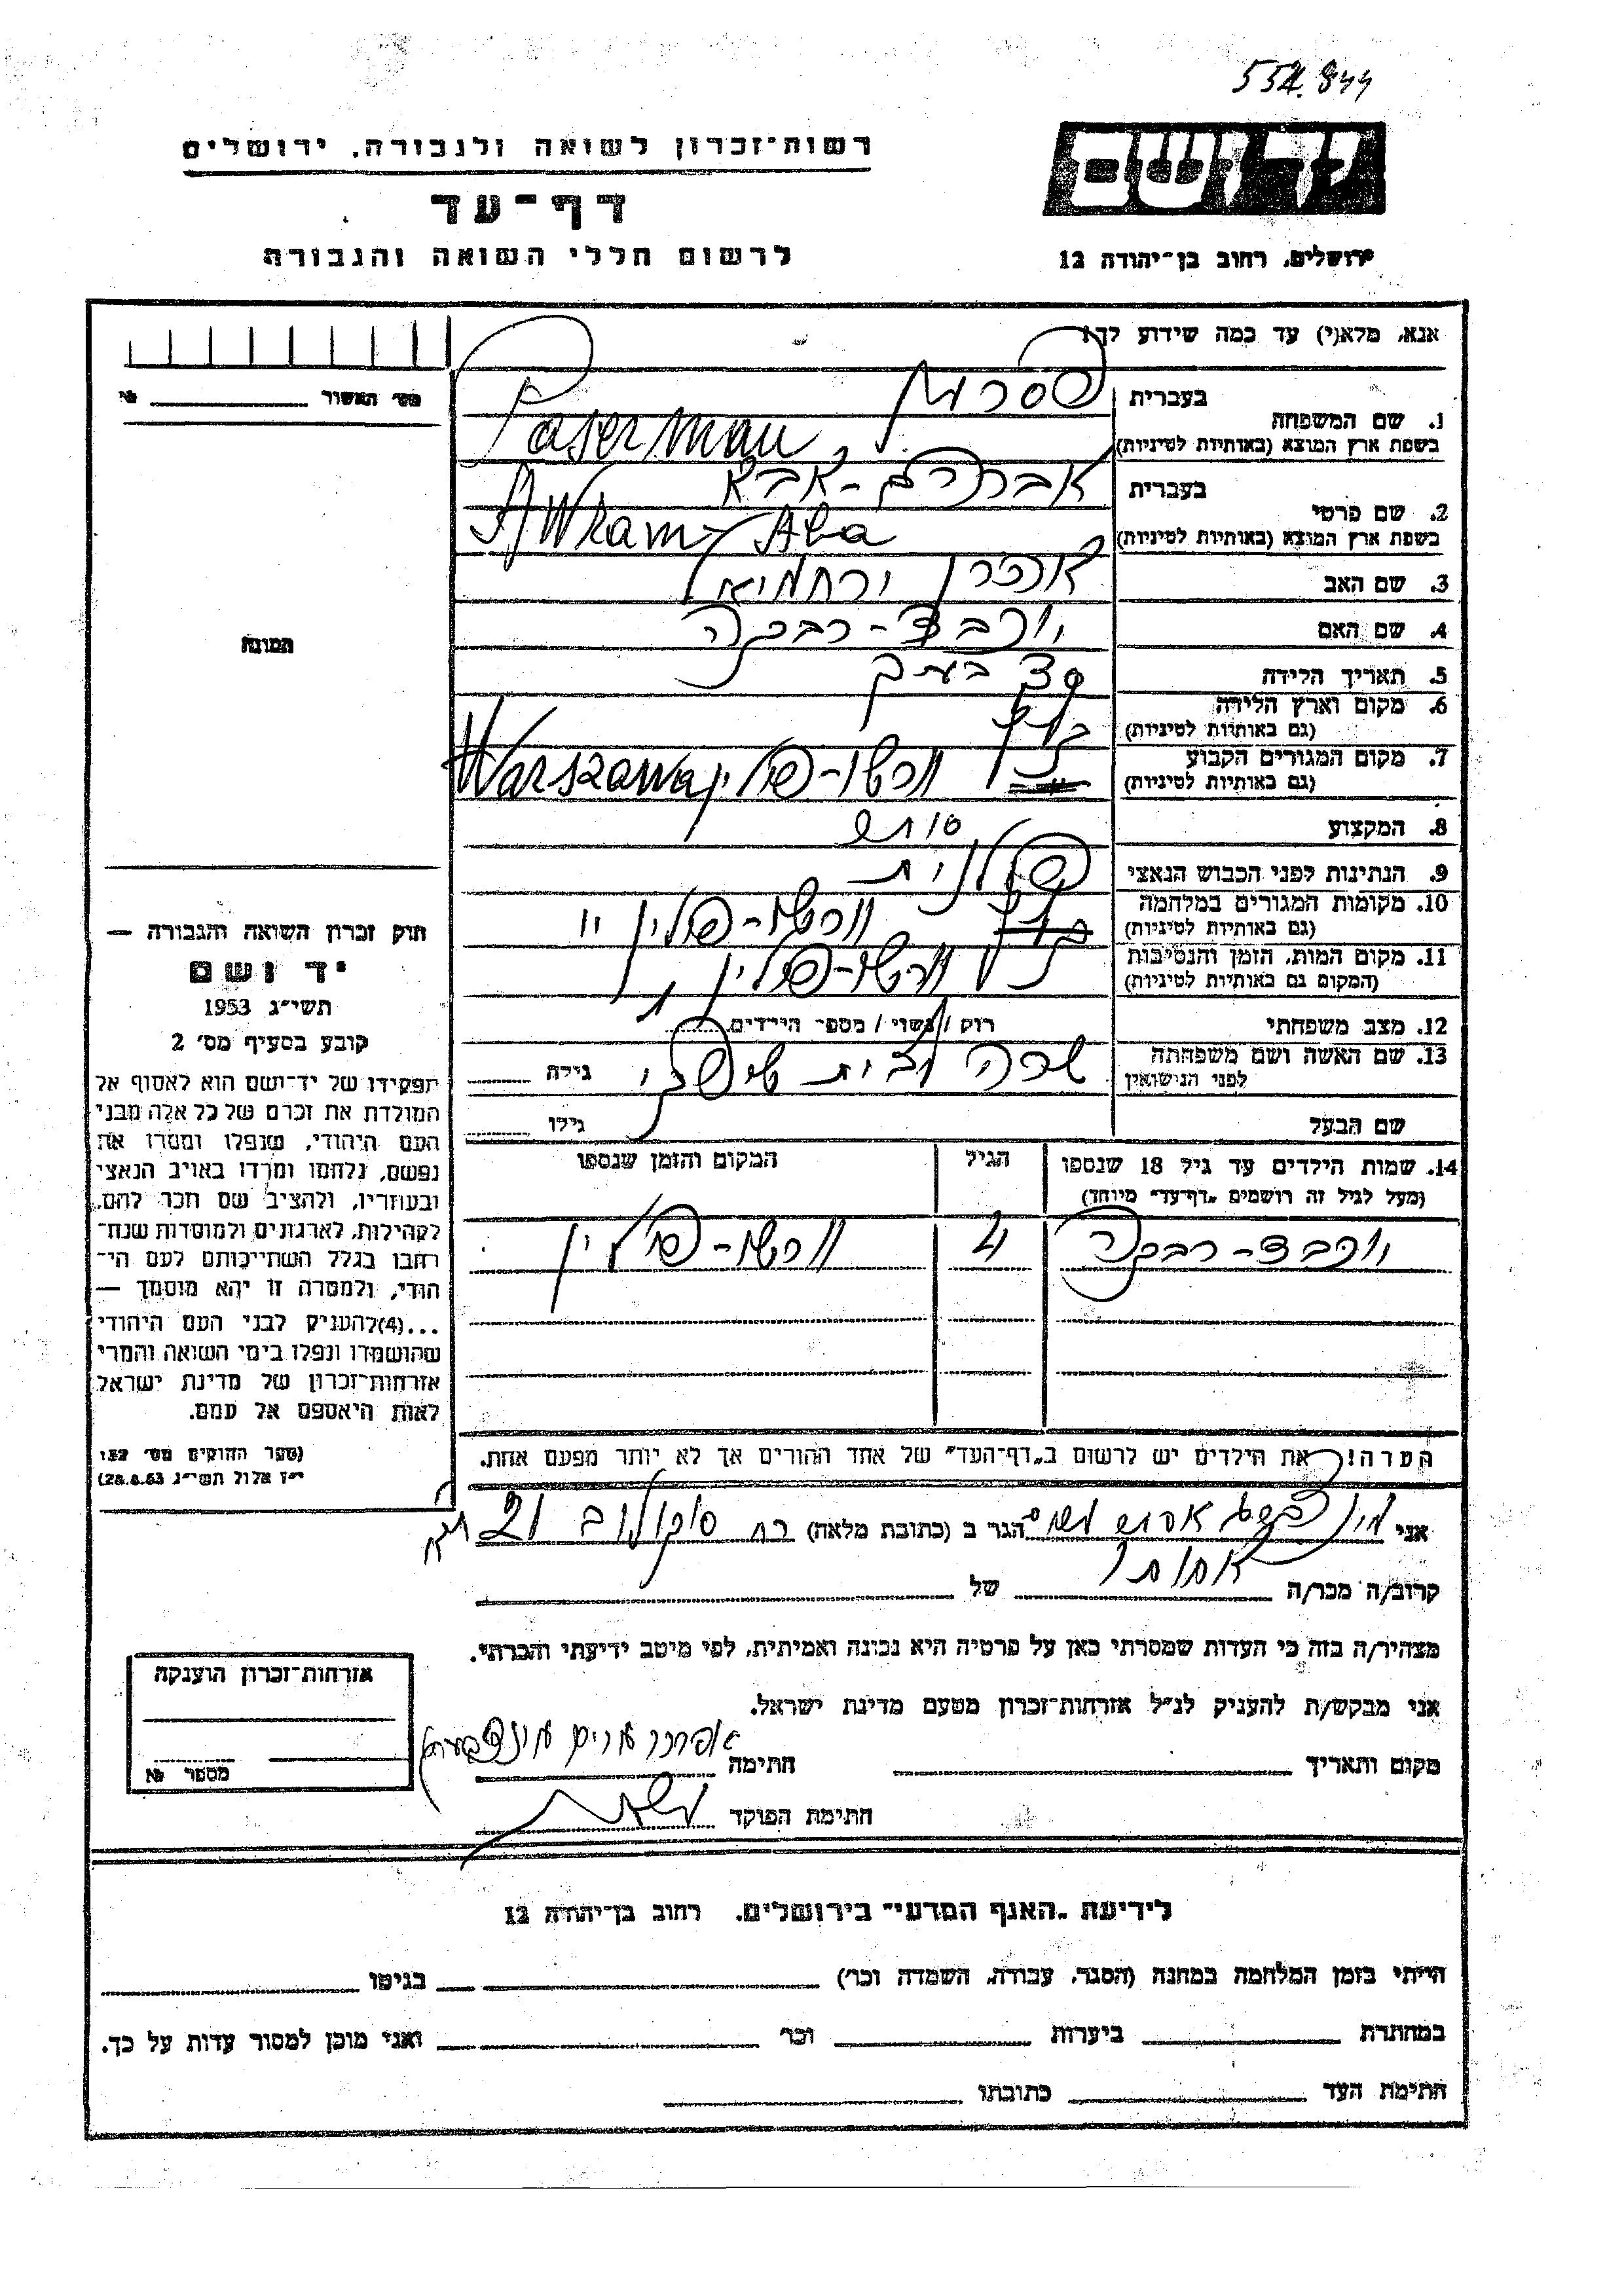 554.844
רשות־זכרון לשואה ולגבורה, ירושלים
דף־עד
לרשום חללי השואה והגבורה
יד ושם
ירושלים, רחוב בן־יהודה 12
אנא, מלא(י) עד כמה שידוע לך!
מס׳ האשור №
1. שם המשפחה
בעברית פסרמן
בשפת ארץ המוצא (באותיות לטיניות) Paserman
2. שם פרטי
בעברית אברהם-אבא
בשפת ארץ המוצא (באותיות לטיניות) Awram-Aba
3. שם האב אהרן ירחמיאל
4. שם האם רבקה
5. תאריך הלידה
6. מקום וארץ הלידה
(גם באותיות לטיניות)
7. מקום המגורים הקבוע ורשו-פולין Warszawa
(גם באותיות לטיניות)
8. המקצוע סוחר
9. הנתינות לפני הכבוש הנאצי פולנית
10. מקומות המגורים במלחמה ורשו-פולין
(גם באותיות לטיניות)
11. מקום המות, הזמן והנסיבות ורשו-פולין
(המקום גם באותיות לטיניות)
12. מצב משפחתי רוק / נשוי / מספר הילדים
13. שם האשה ושם משפחתה שרה לבית גילה
לפני הנישואין
שם הבעל גילו
14. שמות הילדים עד גיל 18 שנספו הגיל המקום והזמן שנספו
(מעל לגיל זה רושמים „דף־עד״ מיוחד)
רבקה 4 ורשו-פולין
הערה! את הילדים יש לרשום ב„דף־העד״ של אחד ההורים אך לא יותר מפעם אחת.
תמונה
חוק זכרון השואה והגבורה —
יד ושם
תשי״ג 1953
קובע בסעיף מס׳ 2
תפקידו של יד־ושם הוא לאסוף אל
המולדת את זכרם של כל אלה מבני
העם היהודי, שנפלו ומסרו את
נפשם, נלחמו ומרדו באויב הנאצי
ובעוזריו, ולהציב שם וזכר להם,
לקהילות, לארגונים ולמוסדות שנח־
רבו בגלל השתייכותם לעם הי־
הודי, ולמטרה זו יהא מוסמך —
...(4)להעניק לבני העם היהודי
שהושמדו ונפלו בימי השואה והמרי
אזרחות־זכרון של מדינת ישראל
לאות היאספם אל עמם.
(ספר החוקים מס׳ 132,
י״ז אלול תשי״ג 28.8.53)
אני הגר ב (כתובת מלאה) רח סוקולוב 21
קרוב/ה מכר/ה אחותו של
מצהיר/ה בזה כי העדות שמסרתי כאן על פרטיה היא נכונה ואמיתית, לפי מיטב ידיעתי והכרתי.
אני מבקש/ת להעניק לנ״ל אזרחות־זכרון מטעם מדינת ישראל.
מקום ותאריך חתימה
חתימת הפוקד
אזרחות־זכרון הוענקה
מספר №
לידיעת „האגף המדעי״ בירושלים, רחוב בן־יהודה 12
הייתי בזמן המלחמה במחנה (הסגר, עבודה, השמדה וכר׳) בגיטו
במחתרת ביערות וכר׳ ואני מוכן למסור עדות על כך.
חתימת העד כתובתו